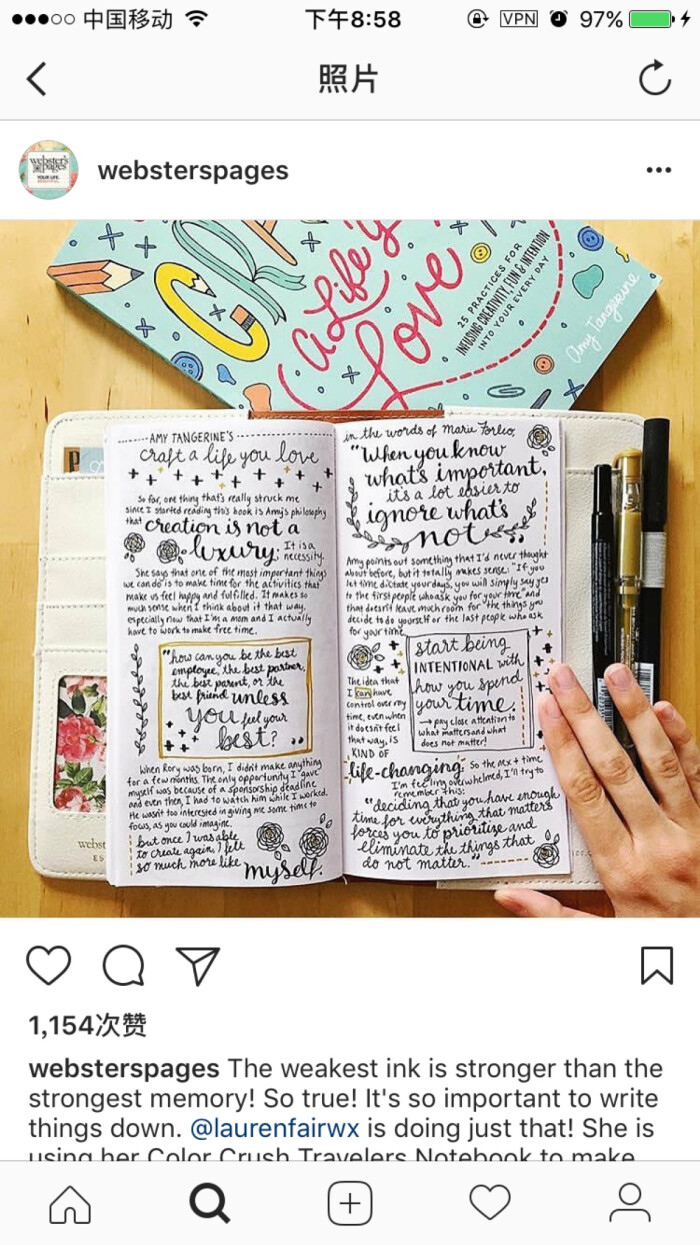 中国移动
下午8:58
VPN
97%
照片
webster's
pages
YOUR LIFE.
websterspages
CRA
A Life y
Love
25 PRACTICES FOR
INFUSING CREATIVITY, FUN & INTENTION
INTO YOUR EVERY DAY
Amy Tangerine
P
AMY TANGERINE'S
craft a life you love
So far, one thing that's really struck me
since I started reading this book is Amy's philosophy
that creation is not a
luxury; It is a
necessity.
She says that one of the most important things
we can do is to make time for the activities that
make us feel happy and fulfilled. It makes so
much sense when I think about it that way,
especially now that I'm a mom and I actually
have to work to make free time.
"how can you be the best
employee, the best partner,
the best parent, or the
best friend unless
you feel your
best?"
When Rory was born, I didn't make anything
for a few months. The only opportunity I "gave"
myself was because of a sponsorship deadline
and even then, I had to watch him while I worked.
He wasn't too interested in giving me some time to
focus, as you could imagine.
but once I was able
to create again, I felt
so much more like myself.
webst
ES
in the words of marie Forleo,
"When you know
what's important,
it's a lot easier to
ignore what's
not."
Amy points out something that I'd never thought
about before, but it totally makes sense: "If you
let time dictate your days, you will simply say yes
to the first people who ask you for your time" and
that doesn't leave much room for "the things you
decide to do yourself or the last people who ask
for your time."
start being
INTENTIONAL with
how you spend
your time.
→ pay close attention to
what matters and what
does not matter!
The idea that
I can have
control over my
time, even when
it doesn't feel
that way, is
KIND OF
life-changing. So the next time
I'm feeling overwhelmed, I'll try to
remember this:
"deciding that you have enough
time for everything that matters
forces you to prioritise and
eliminate the things that
do not matter."
1,154次赞
websterspages The weakest ink is stronger than the
strongest memory! So true! It's so important to write
things down. @laurenfairwx is doing just that! She is
using her Color Crush Travelers Notebook to make